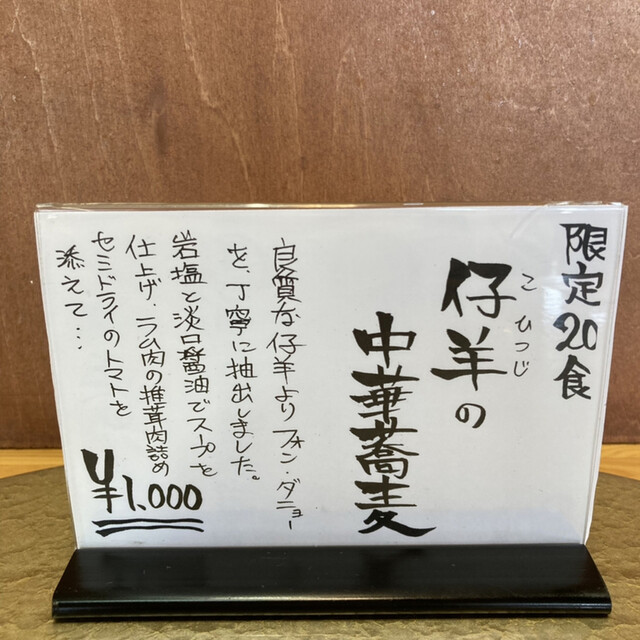 限定20食
こひつじ
仔羊の
中華蕎麦
良質な仔羊よりフォン・ダニョー
を、丁寧に抽出しました。
岩塩と淡口醤油でスープを
仕上げ、ラム肉の椎茸肉詰め
セミドライのトマトを
添えて…
¥1,000